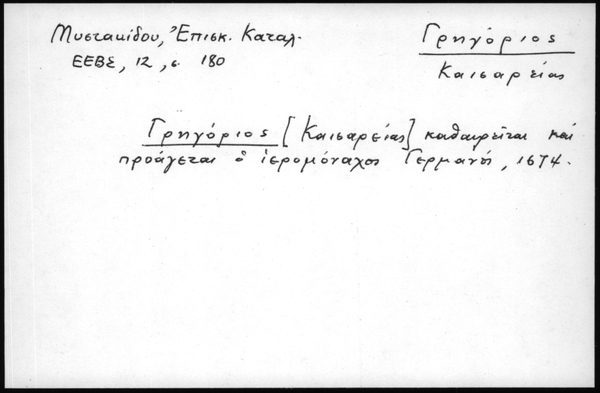 Μυστακίδου, Ἐπισκ. Καταλ.
ΕΕΒΣ, 12, σ. 180
Γρηγόριος
Καισαρείας
Γρηγόριος [Καισαρείας] καθαιρεῖται καί
προάγεται ὁ ἱερομόναχος Γερμανός, 1674.